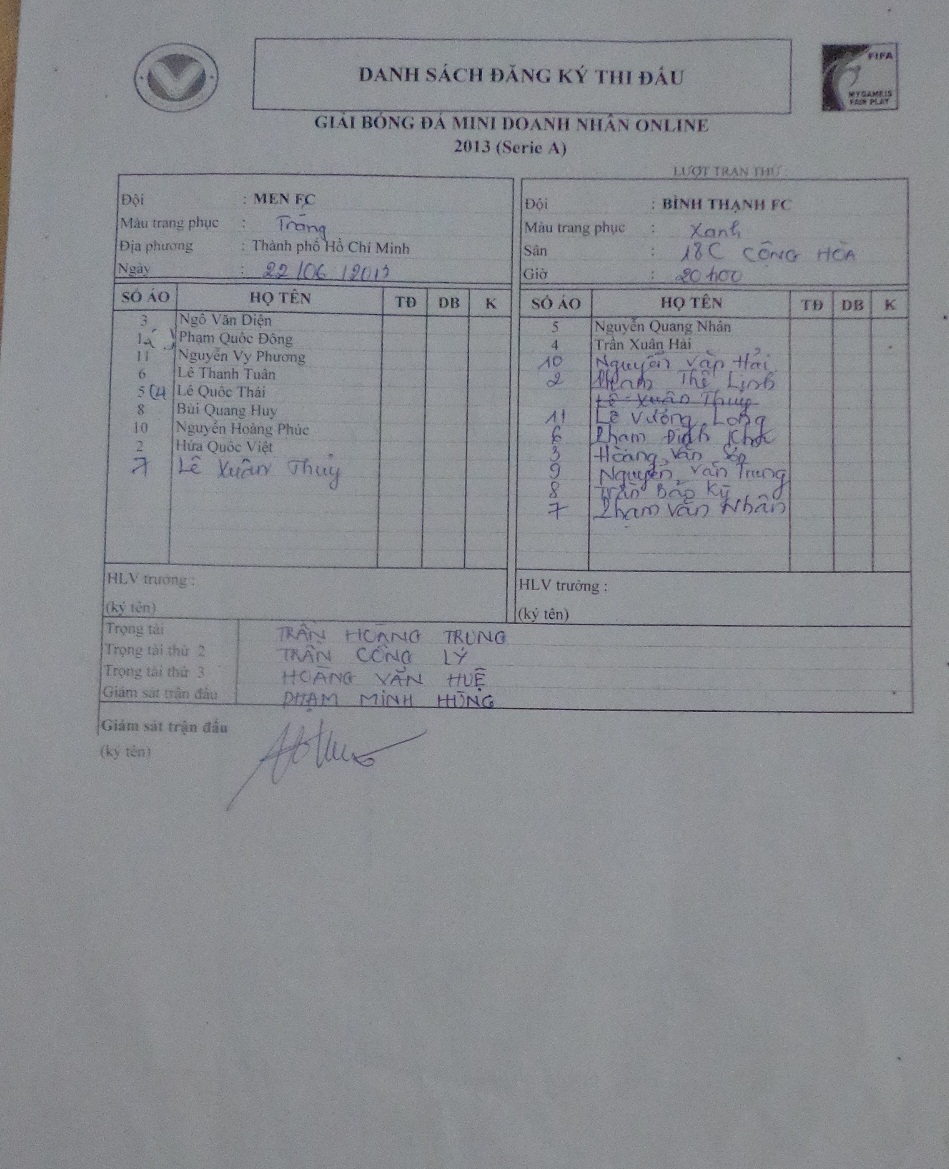 DANH SÁCH ĐĂNG KÝ THI ĐẤU
FIFA
MY GAME IS
FAIR PLAY
GIẢI BÓNG ĐÁ MINI DOANH NHÂN ONLINE
2013 (Serie A)
LƯỢT TRẬN THỨ
Đội : MEN FC
Màu trang phục : Trắng
Địa phương : Thành phố Hồ Chí Minh
Ngày : 22/06/2013
SỐ ÁO HỌ TÊN TĐ DB K
3 Ngô Văn Diện
Phạm Quốc Đông
11 Nguyễn Vy Phương
6 Lê Thanh Tuân
5 Lê Quốc Thái
8 Bùi Quang Huy
10 Nguyễn Hoàng Phúc
2 Hứa Quốc Việt
7 Lê Xuân Thủy
HLV trưởng :
(ký tên)
Đội : BÌNH THẠNH FC
Màu trang phục : Xanh
Sân : 18C CỘNG HÒA
Giờ : 20h00
SỐ ÁO HỌ TÊN TĐ DB K
5 Nguyễn Quang Nhân
4 Trần Xuân Hải
10 Nguyễn Văn Hải
2 Phạm Thế Linh
Lê Xuân Thuỷ
11 Lê Vương Long
6 Phạm Đình
3 Hoàng Văn
9 Nguyễn Văn Trung
8 Trần Bảo Kỳ
7 Phạm Văn Nhân
HLV trưởng :
(ký tên)
Trọng tài TRẦN HOÀNG TRUNG
Trọng tài thứ 2 TRẦN CÔNG LÝ
Trọng tài thứ 3 HOÀNG VĂN HUỆ
Giám sát trận đấu PHẠM MINH HÙNG
Giám sát trận đấu
(ký tên)